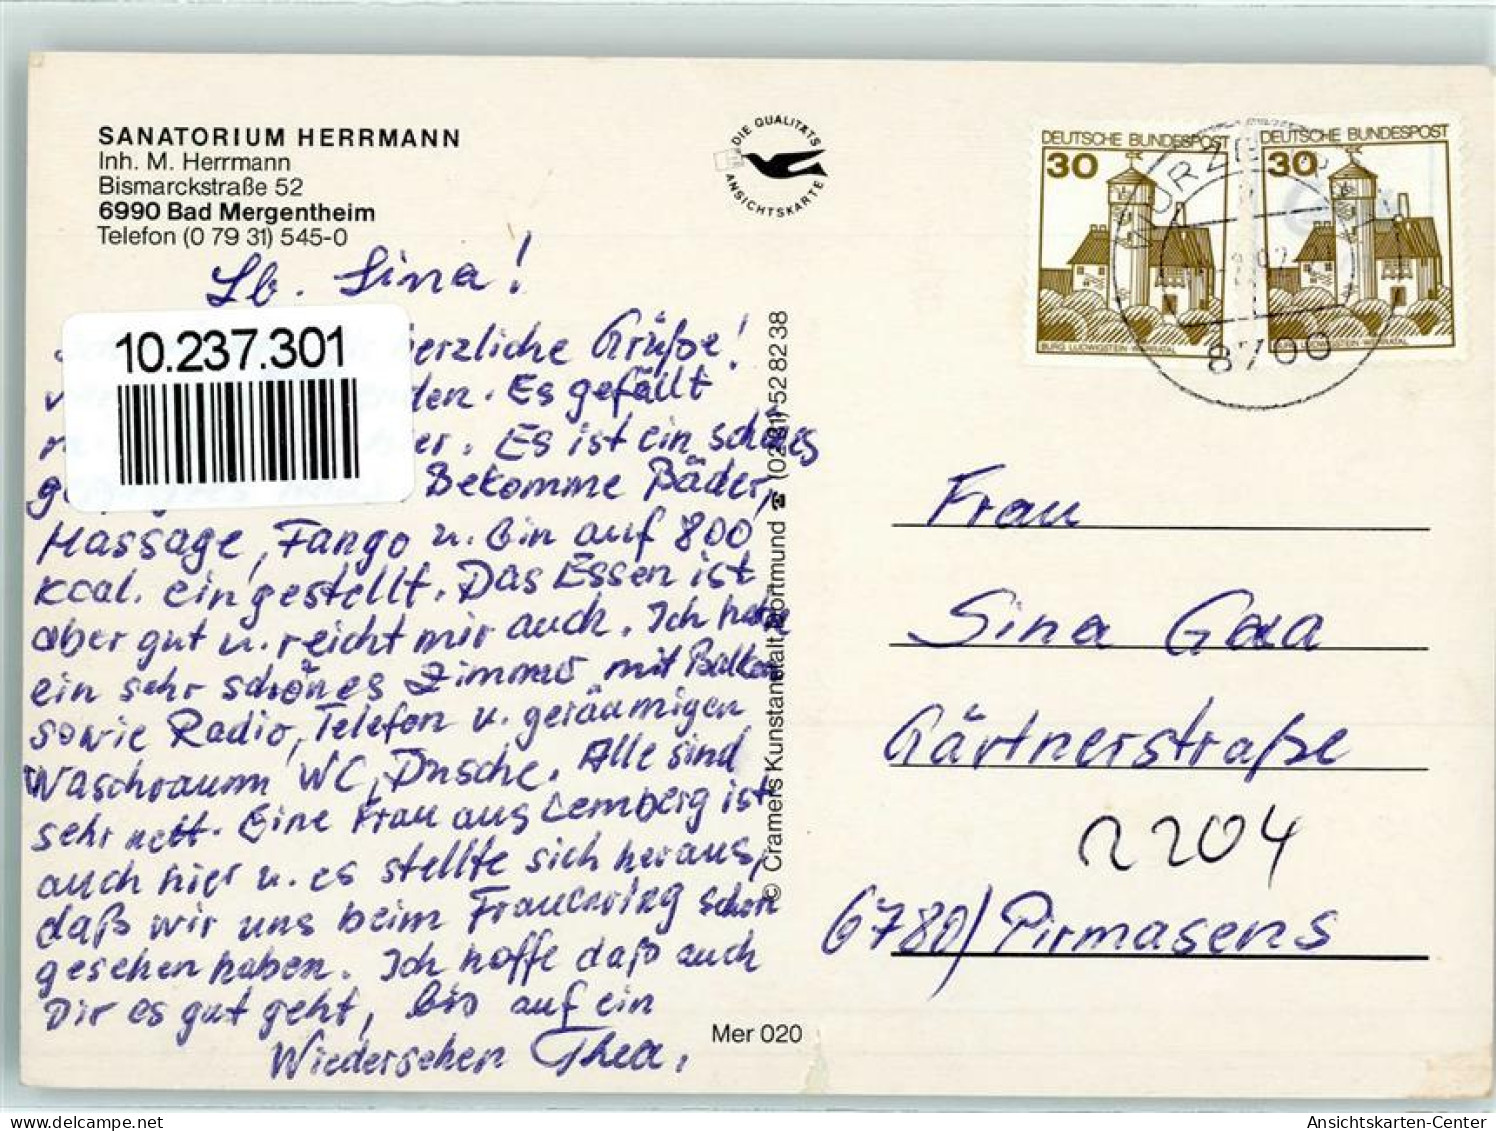 SANATORIUM HERRMANN
Inh. M. Herrmann
Bismarckstraße 52
6990 Bad Mergentheim
Telefon (0 79 31) 545-0
DIE QUALITÄTS
ANSICHTSKARTE
DEUTSCHE BUNDESPOST
30
BURG LUDWIGSTEIN · WERRATAL
DEUTSCHE BUNDESPOST
30
8700
Lb. Sina!
10.237.301
herzliche Grüße!
Es gefällt
hier. Es ist ein schönes
Bekomme Bäder,
Massage, Fango u. bin auf 800
kcal. eingestellt. Das Essen ist
aber gut u. reicht mir auch. Ich habe
ein sehr schönes Zimmer mit Balkon
sowie Radio, Telefon u. geräumigen
Waschraum WC, Dusche. Alle sind
sehr nett. Eine Frau aus Lemberg ist
auch hier u. es stellte sich heraus,
daß wir uns beim Frauenring schon
gesehen haben. Ich hoffe daß auch
Dir es gut geht, bis auf ein
Wiedersehen Thea.
© Cramers Kunstanstalt, Dortmund ☎ (0231) 52 82 38
Mer 020
Frau
Sina Gaa
Gärtnerstraße
2204
6780/Pirmasens
www.delcampe.net
Ansichtskarten-Center